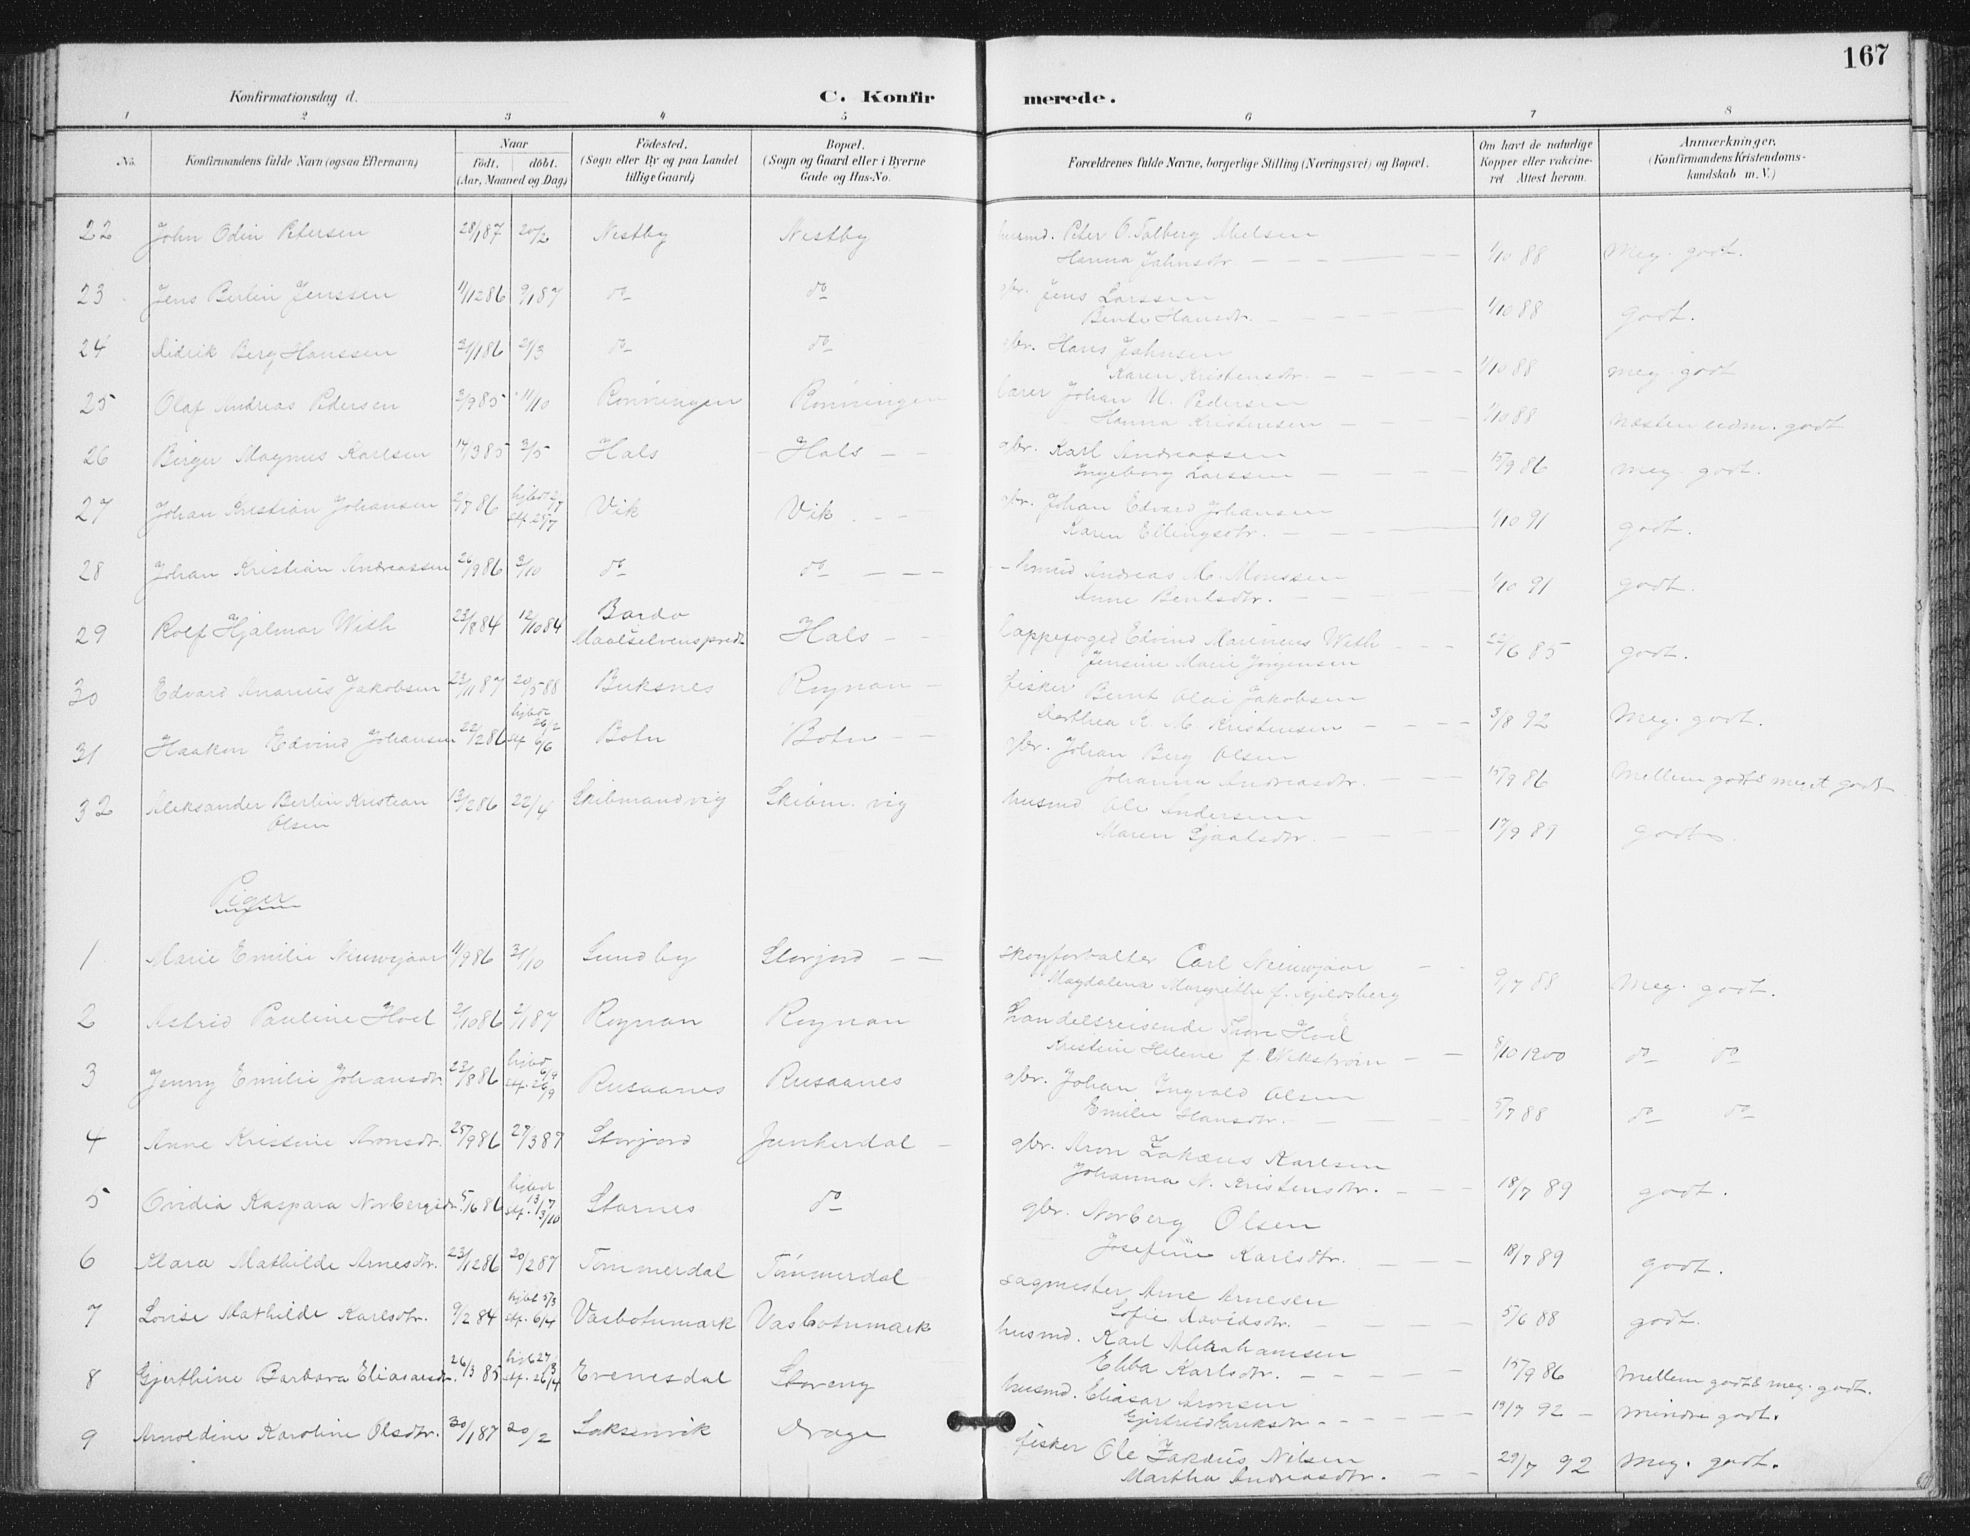 167
Konfirmationsdag d.
C. Konfirmerede.
1 2 3 4 5 6 7 8
No. Konfirmandens fulde Navn (ogsaa Efternavn) Naar født. døbt. (Aar, Maaned og Dag) Fødested. (Sogn eller By og paa Landet tillige Gaard) Bopæl. (Sogn og Gaard eller i Byerne Gade og Hus-No. Forældrenes fulde Navne, borgerlige Stilling (Næringsvei) og Bopæl. Om havt de naturlige Kopper eller vakcineret. Attest herom. Anmærkninger. (Konfirmandens Kristendomskundskab m. V.)
22 John Odin Petersen 28/1 87 20/2 Nestby Nestby husmd. Peter O. Talberg Nielsen
Hanna Jahnsdtr. 1/10 88 Meg. godt.
23 Jens Berlin Jenssen 11/12 86 9/1 87 do do gbr. Jens Larssen
Bente Hansdtr. 1/10 88 godt.
24 Didrik Berg Hanssen 31/1 86 21/3 do do gbr. Hans Jahnsen
Karen Kristensdtr. 1/10 88 meg. godt
25 Olaf Andreas Pedersen 3/9 85 11/10 Rønningen Rønningen lærer Johan N. Pedersen
Hanna Kristensen 1/10 88 næsten udm. godt
26 Birger Magnus Karlsen 14/3 85 3/5 Hals Hals gbr. Karl Andreassen
Ingeborg Larssen 15/9 86 meg. godt.
27 Johan Kristian Johansen 2/7 86 hjbdt 2/7 stf. 25/7 Vik Vik gbr. Johan Edvard Johansen
Karen Ellingsdtr. 1/10 91 godt.
28 Johan Kristian Andreassen 26/9 86 3/10 do do husmd Andreas M. Monssen
Anne Bentsdtr. 1/10 91 godt.
29 Rolf Hjalmar With 23/8 84 12/10 84 Bardo Maalselvens prgd. Hals lappefoged Edvind Marinius With
Jensine Marie Jørgensen 22/6 85 godt.
30 Edvard Anarius Jakobsen 23/1 87 20/5 88 Buksnes Rognan fisker Bernt Olai Jakobsen
Dorthea K. M. Kristensen 3/8 92 Meg. godt.
31 Haakon Edvind Johansen 22/2 86 hjbdt 26/2 stf 6/6 Botn Botn gbr. Johan Berg Olsen
Johanna Andreasdtr. 15/9 86 Mellem godt & meget godt
32 Aleksander Berlin Kristian Olsen 13/2 86 22/4 Skibmandvig Skibm. vig husmd Ole Andersen
Maren Gjaalsdtr. 17/9 89 godt
Piger
1 Marie Emilie Nieuwejaar 11/9 86 31/10 Sundby Storjord skogforvalter Carl Nieuwejaar
Magdalena Margrethe f. Kjeldsberg 9/7 88 Meg. godt.
2 Astrid Pauline Hoel 2/10 86 2/1 87 Rognan Rognan Handelsreisende Thore Hoel
Kristine Helene f. Wikstrøm 8/10 1900 do do
3 Jenny Emilie Johansdtr. 22/8 86 hjbdt 6/9 stf. 26/9 Rusaanes Rusaanes gbr. Johan Ingvald Olsen
Emilie Hansdtr. 5/7 88 do do
4 Anne Kristine Aronsdtr. 25/9 86 27/3 87 Storjord Junkerdal gbr. Aron Zakæus Karlsen
Johanna N. Kristensdtr. 18/7 89 godt.
5 Ovidia Kaspara Norbergsdtr. 5/6 86 hjbdt 13/7 stf. 3/10 Starnes do gbr. Norberg Olsen
Josefine Karlsdtr. 18/7 89 godt.
6 Klara Mathilde Arnesdtr. 23/12 86 20/2 87 Tømmerdal Tømmerdal sagmester Arne Arnesen
Sofie Davidsdtr. 5/6 88 godt.
7 Lovise Mathilde Karlsdtr. 9/2 84 hjbdt 5/3 stf. 6/4 Vasbotnmark Vasbotnmark husmd. Karl Abrahamsen
Ebba Karlsdtr. 15/9 86 Mellem godt & meg. godt.
8 Gjerthine Barbara Eliasarsdtr. 26/3 85 hjb 27/3 stf. 26/4 Evenesdal Storeng husmd. Eliasar Aronsen
Gjertrud Eriksdtr 19/7 92 mindre godt.
9 Arnoldine Karoline Olsdtr. 30/1 87 20/2 Saksenvik Drage fisker Ole Zakæus Nilsen
Martha Andreasdtr. 29/7 92 Meg. godt.